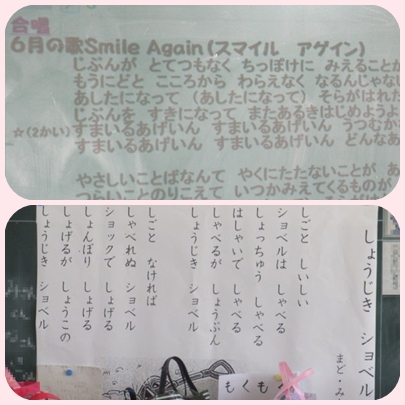 合唱
6月の歌Smile Again(スマイル アゲイン)
じぶんが とてつもなく ちっぽけに みえることが
もうにどと こころから わらえなく なるんじゃな
あしたになって (あしたになって) そらがはれた
じぶんを すきになって またあるきはじめよう
☆(2かい)すまいるあげいん すまいるあげいん うつむか
すまいるあげいん すまいるあげいん どんなあ
やさしいことばなんて やくにたたないことが あ
つらいことのりこえて いつかみえてくるものが
しょうじき ショベル
まど・み
しごと しいしい
ショベルは しゃべる
しょっちゅう しゃべる
はしゃいで しゃべる
しゃべるが しょうぶん
しょうじき ショベル
しごと なければ
しゃべれぬ ショベル
ショックで しょげる
しょんぼり しょげる
しょげるが しょうこの
しょうじき ショベル
もくも